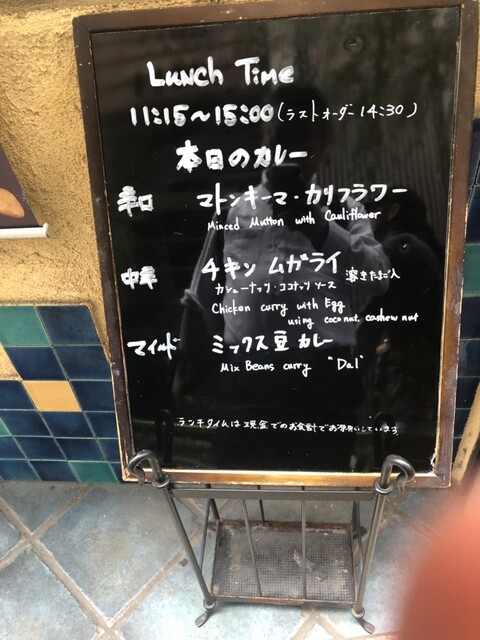 Lunch Time
11:15~15:00(ラストオーダー14:30)
本日のカレー
辛口 マトンキーマ・カリフラワー
Minced Mutton with Cauliflower
中辛 チキン ムガライ 溶きたまご入
カシューナッツ・ココナッツソース
Chicken curry with Egg
using coconut, cashew nut
マイルド ミックス豆カレー
Mix Beans curry "Dal"
ランチタイムは現金でのお会計でお願いしています。